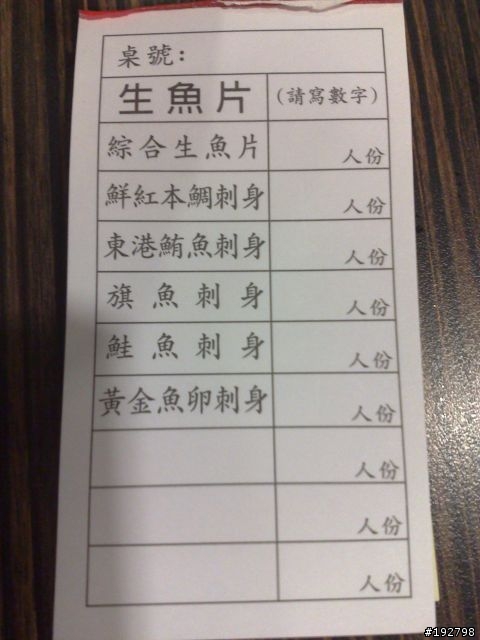 桌號:
生魚片 (請寫數字)
綜合生魚片 人份
鮮紅本鯛刺身 人份
東港鮪魚刺身 人份
旗魚刺身 人份
鮭魚刺身 人份
黃金魚卵刺身 人份
人份
人份
人份
#192798